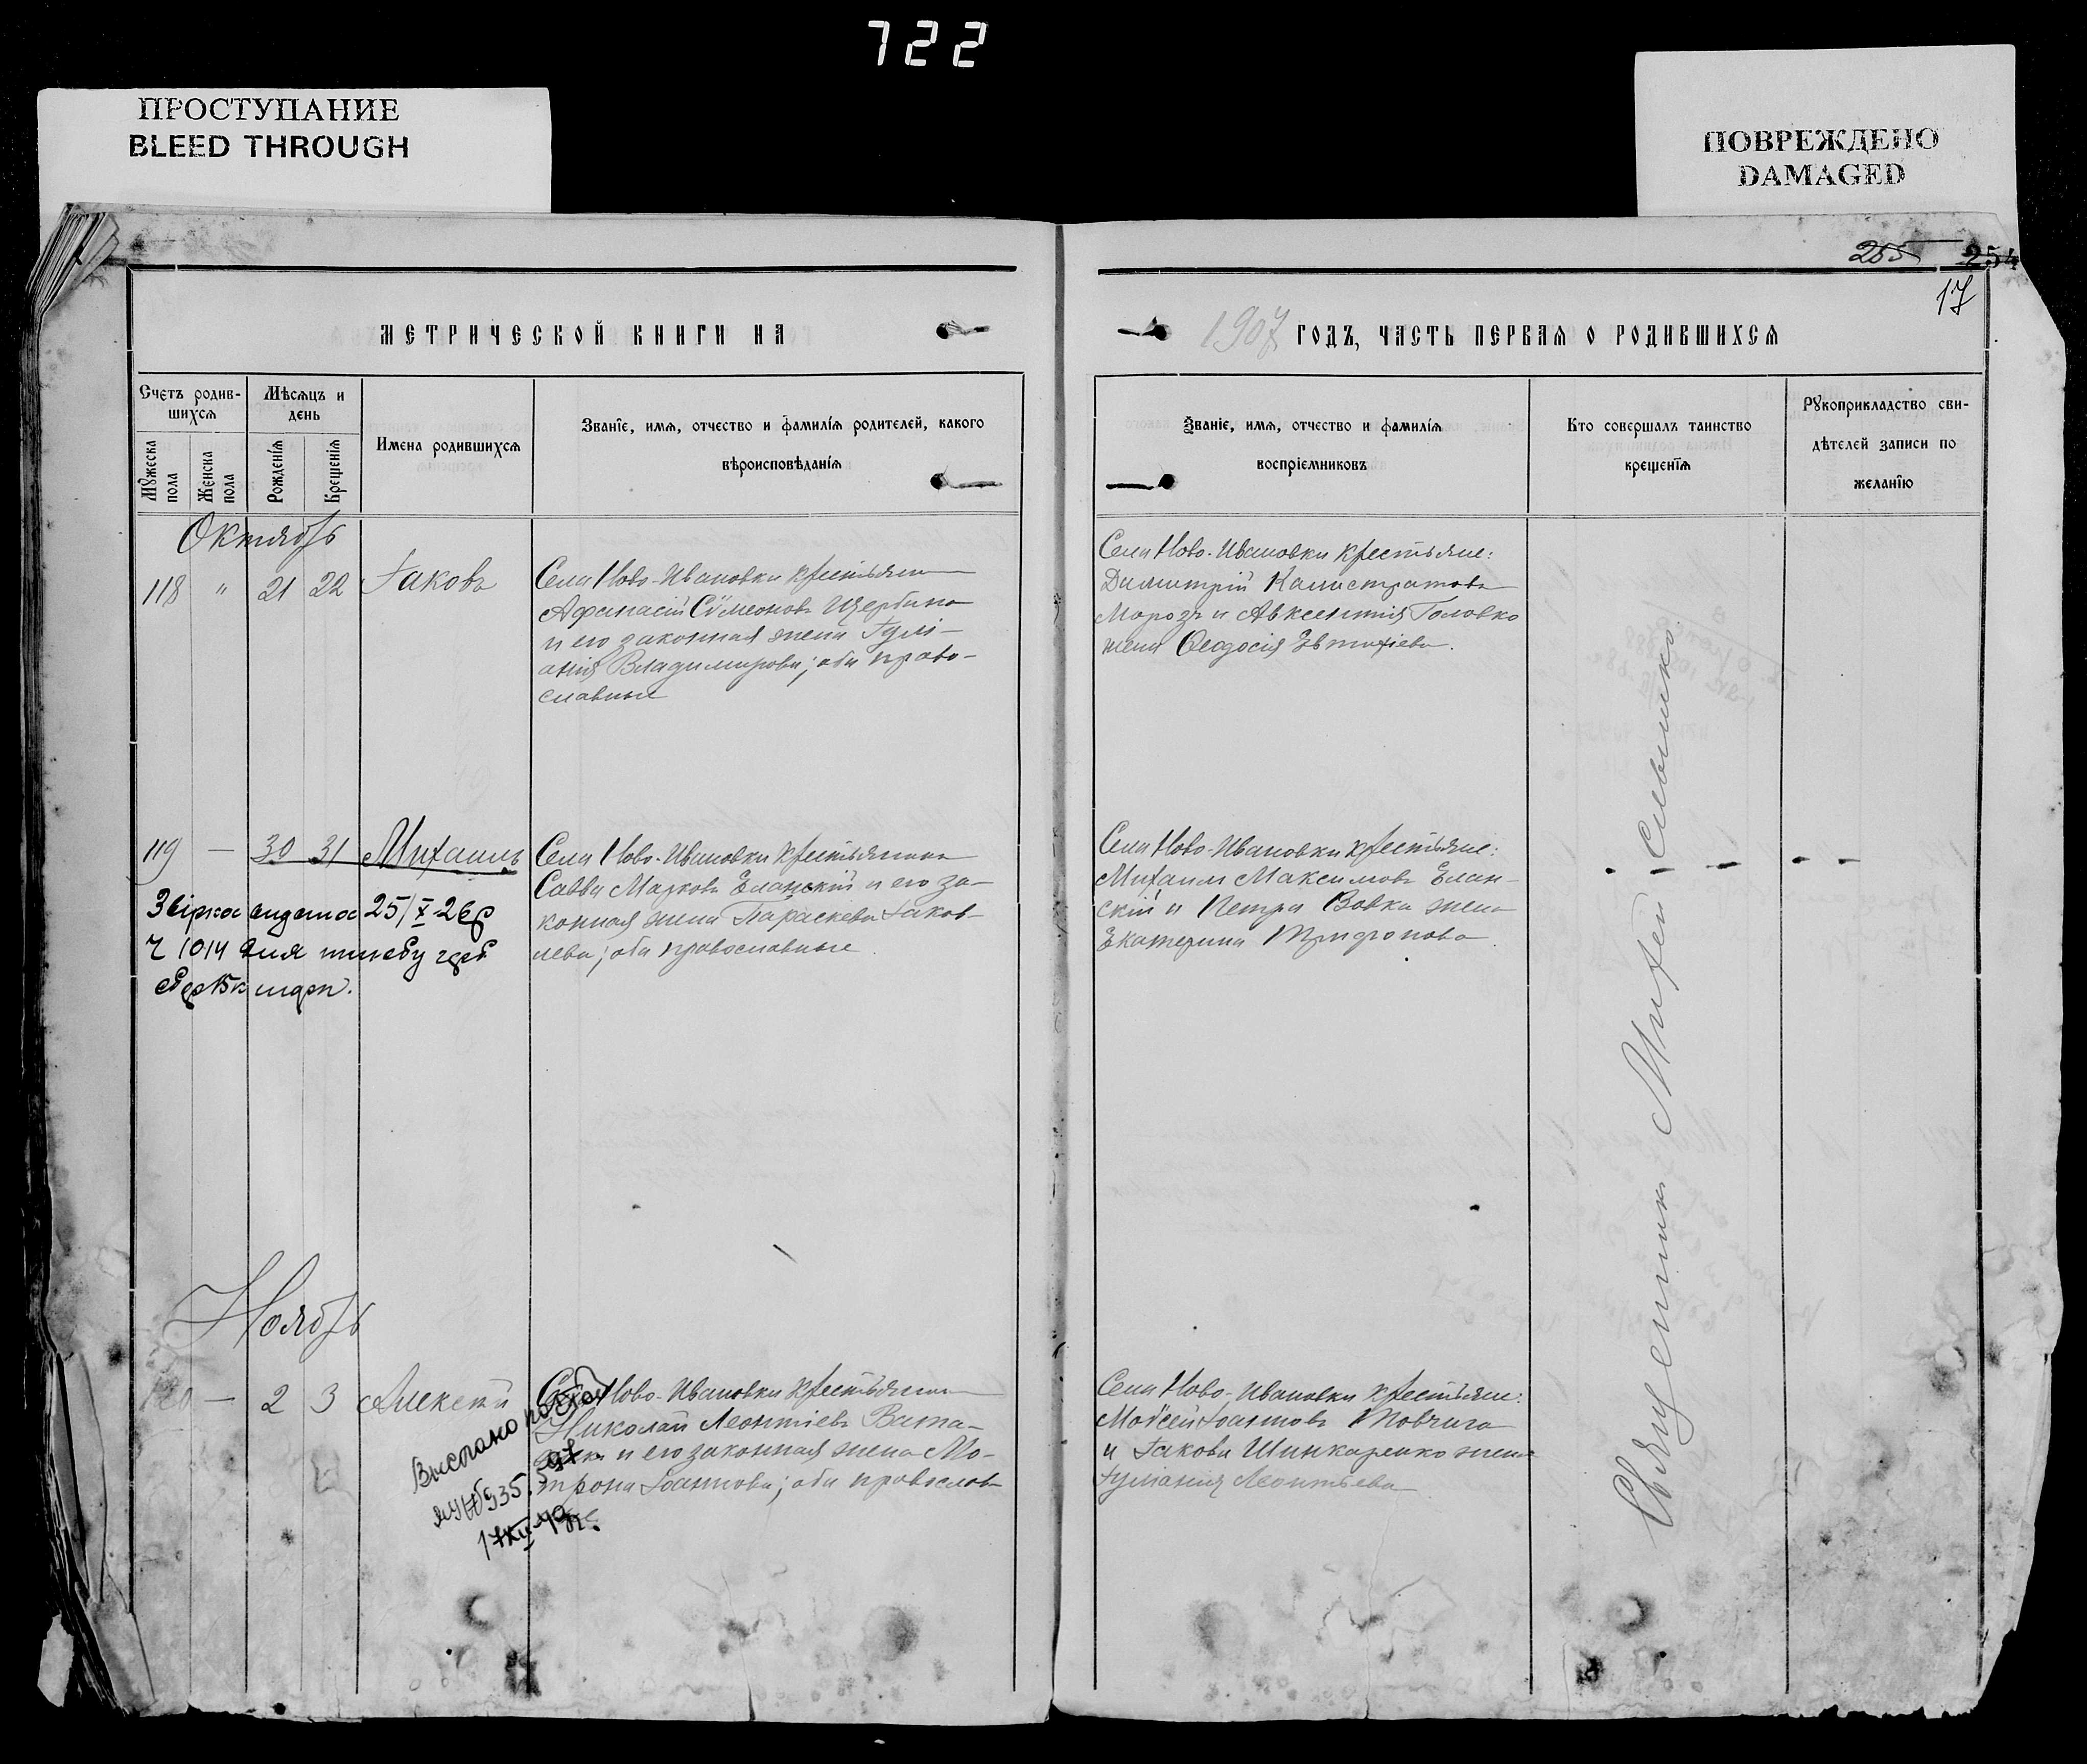 722
ПРОСТУПАНИЕ
BLEED THROUGH
ПОВРЕЖДЕНО
DAMAGED
265 254
17
МЕТРИЧЕСКОЙ КНИГИ НА
1907 ГОДЪ, ЧАСТЬ ПЕРВАЯ О РОДИВШИХСЯ
Счетъ родив-
шихся
Мꙋжеска пола
Женска пола
Мѣсяцъ и
день
Рожденїя
Крещенїя
Имена родившихся
Званїе, имя, отчество и фамилїя родителей, какого
вѣроисповѣданїя
Званїе, имя, отчество и фамилїя
воспрїемниковъ
Кто совершалъ таинство
крещенїя
Рꙋкоприкладство сви-
дѣтелей записи по
желанїю
Октябрь
118 " 21 22 Іаковъ
Села Ново-Ивановки крестьянинъ
Афанасій Сѵмеоновъ Щербина
и его законная жена Іулі-
анія Владимирова; оба право-
славные
Села Ново-Ивановки крестьяне:
Димитрій Калистратовъ
Морозъ и Авксентія Головко
жена Ѳеодосія Евтихіева.
119 — 30 31 Михаилъ
Села Ново-Ивановки крестьянинъ
Савва Марковъ Еланскій и его за-
конная жена Параскева Іаков-
лева; оба православные
Села Ново-Ивановки крестьяне:
Михаилъ Максимовъ Елан-
скій и Петра Вовка жена
Екатерина Трифонова.
видана 25/X-26р
Ч 1014 для
Ноябрь
120 — 2 3 Алексій
Села Ново-Ивановки крестьянинъ
Николай Леонтіевъ Вата-
и его законная жена Мо-
трона Іоаннова; оба православ
Села Ново-Ивановки крестьяне:
Моѵсей Іоанновъ Товчига
и Іакова Шинкаренко жена
Іуліанія Леонтьева
Выслано
Священникъ Михей Слышко